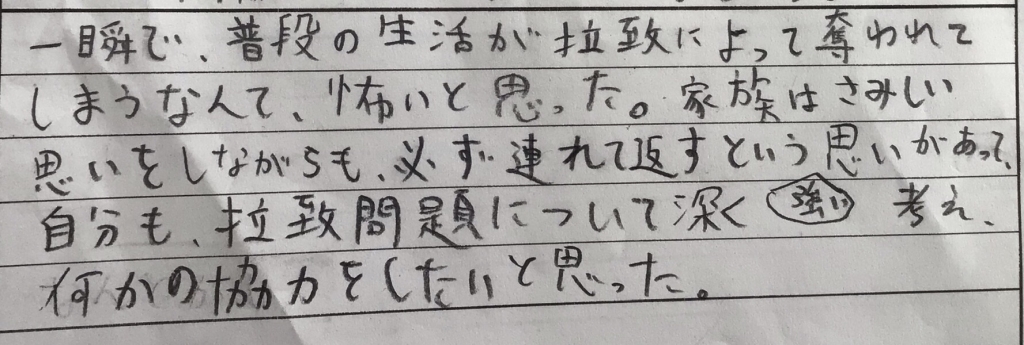 一瞬で、普段の生活が拉致によって奪われて
しまうなんて、怖いと思った。家族はさみしい
思いをしながらも、必ず連れて返すという思いがあって、
自分も、拉致問題について深く 強い 考え、
何かの協力をしたいと思った。